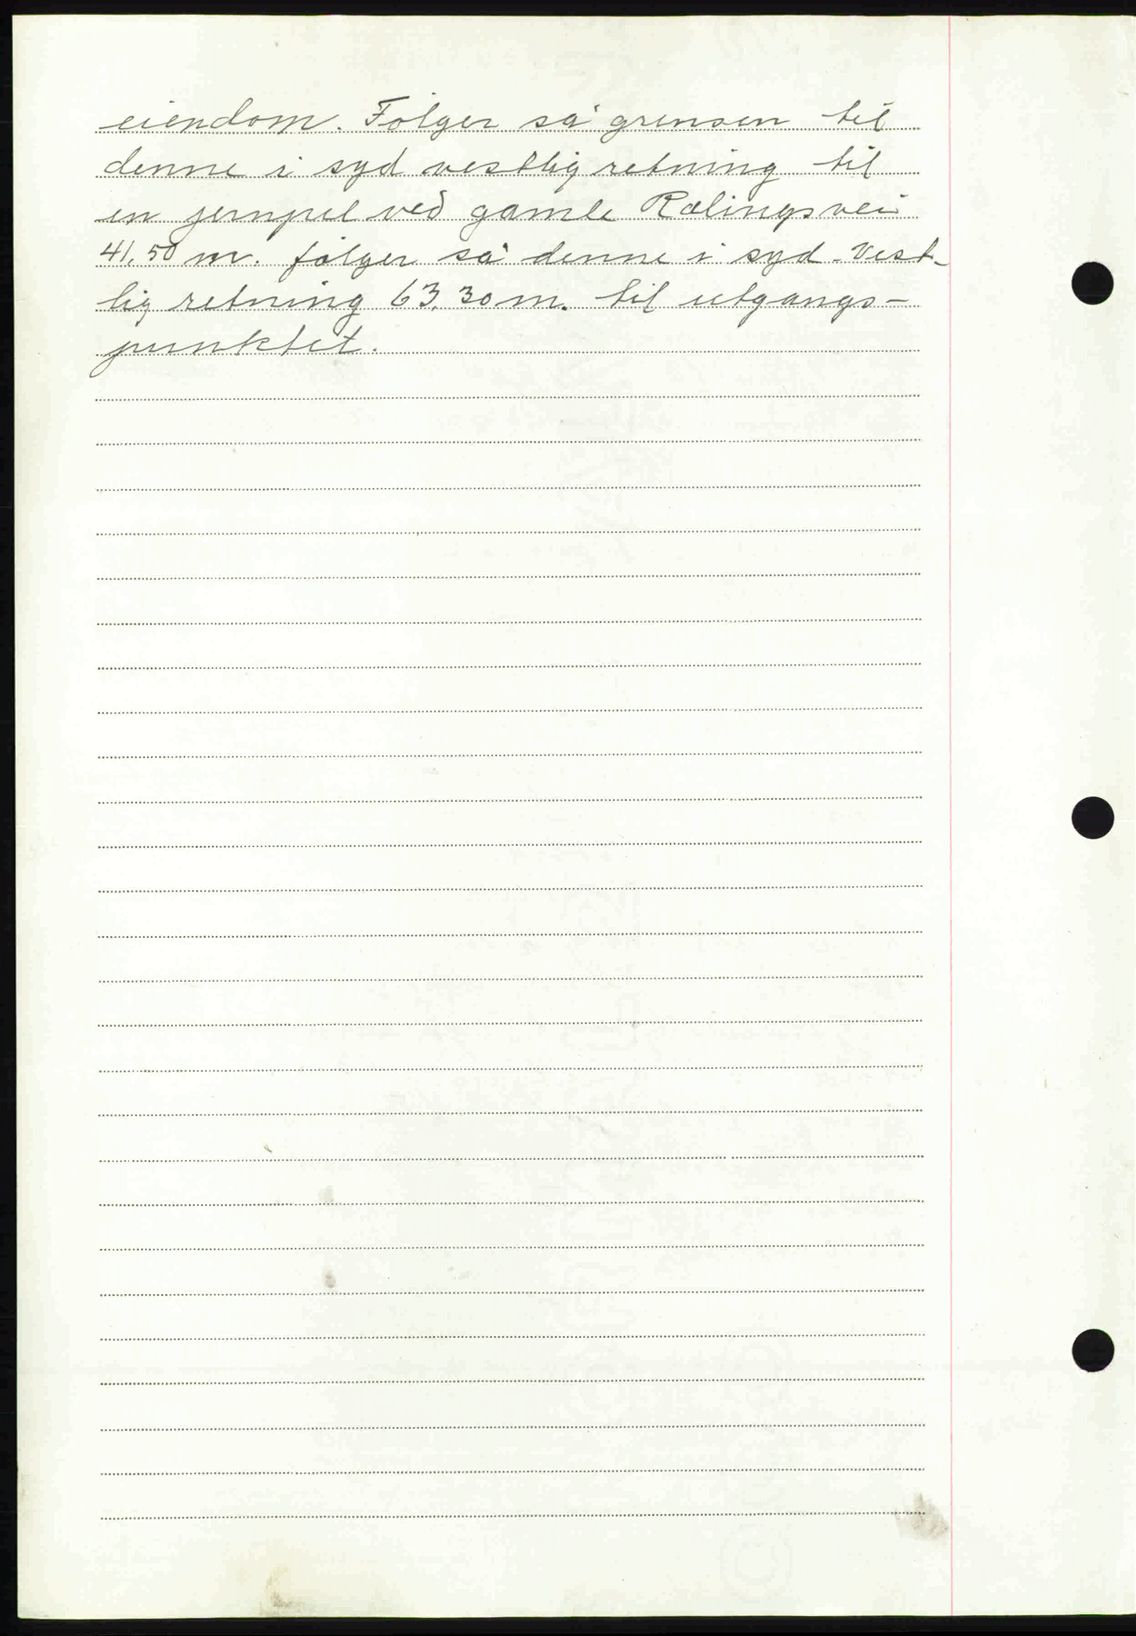 eiendom. Følger så grensen til
denne i syd vestlig retning til
en jernpel ved gamle Rælingsvei
41,50 m. følger så denne i syd-Vest-
lig retning 63,30 m. til utgangs-
punktet.